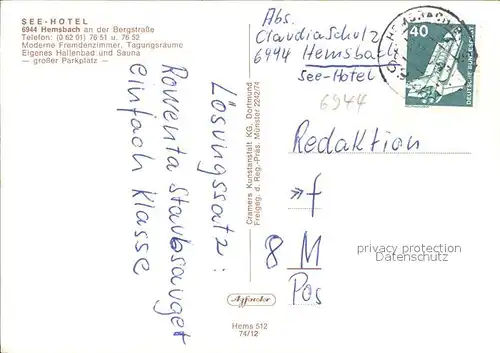 SEE-HOTEL
6944 Hemsbach an der Bergstraße
Telefon: (0 62 01) 76 51 u. 76 52
Moderne Fremdenzimmer, Tagungsräume
Eigenes Hallenbad und Sauna
— großer Parkplatz —
Lösungssatz:
Rowenta Staubsauger
einfach Klasse
Cramers Kunstanstalt KG, Dortmund
Freigeg. d. Reg.-Präs. Münster 2242/74
Hems 512
74/12
Abs.
Claudia Schulz
6944 Hemsbach
See-Hotel
6944
HEMSBACH
40
DEUTSCHE BUNDESPOST
Redaktion
»f
8 M
Pos
privacy protection
Datenschutz